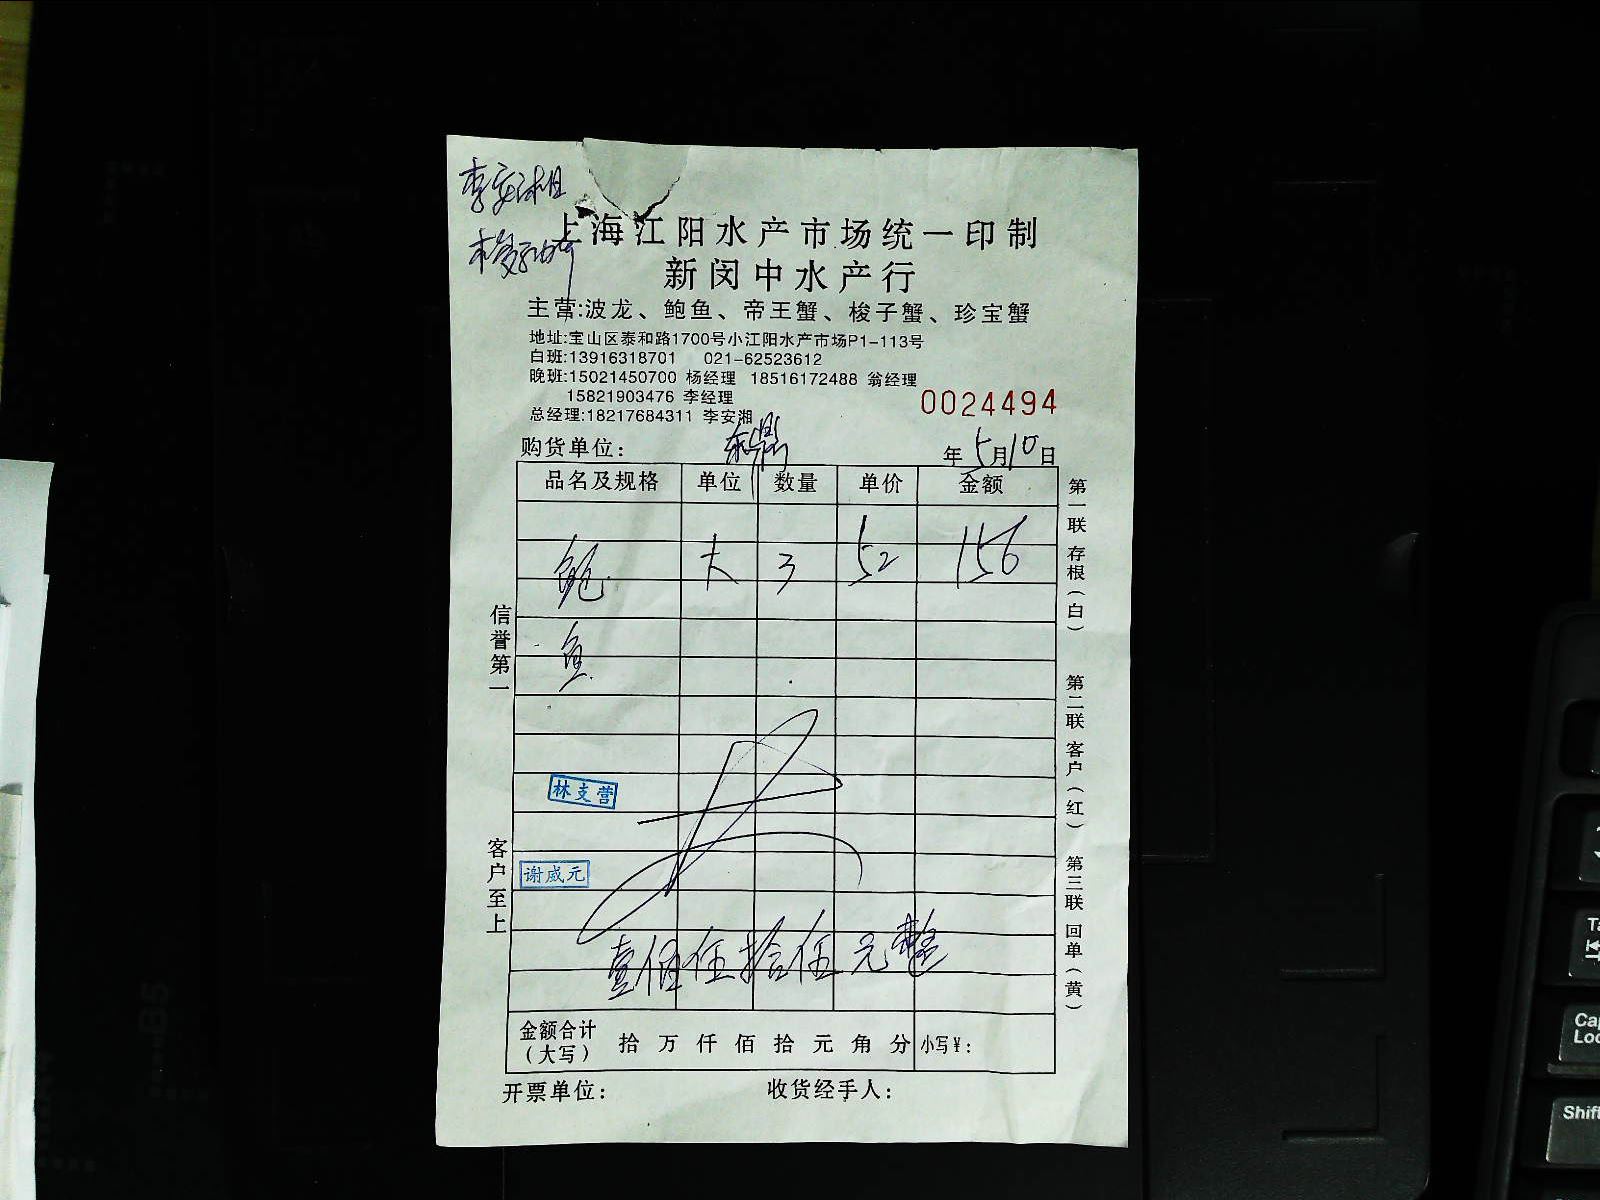 李安湘
上海江阳水产市场统一印制
新闵中水产行
主营:波龙、鲍鱼、帝王蟹、梭子蟹、珍宝蟹
地址:宝山区泰和路1700号小江阳水产市场P1-113号
白班:13916318701 021-62523612
晚班:15021450700 杨经理 18516172488 翁经理
15821903476 李经理
总经理:18217684311 李安湘
0024494
购货单位:
年5月10日
品名及规格 单位 数量 单价 金额
鲍 大 3 52 156
鱼
林支营
谢威元
壹佰伍拾伍元整
金额合计(大写) 拾 万 仟 佰 拾 元 角 分 小写¥:
开票单位: 收货经手人:
信誉第一
客户至上
第一联 存根(白)
第二联 客户(红)
第三联 回单(黄)
B5
Caps Lock
Shift